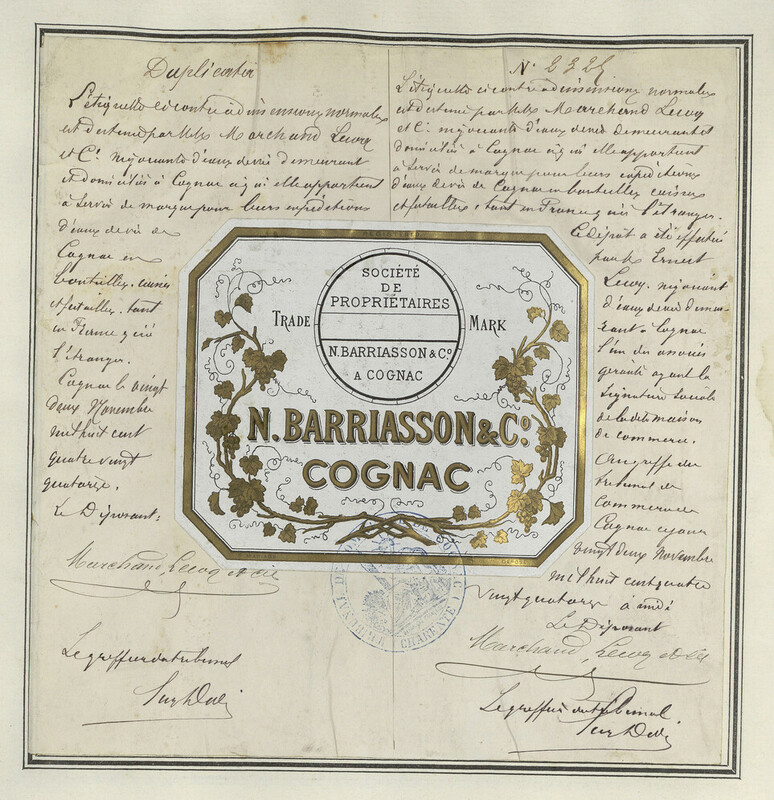 Duplicata
L'étiquette ci contre a dimensions normales
est destiné par MM Marchand Lecoq
et Cie négociants d'eaux de vie demeurant
et domiciliés à Cognac à qui elle appartient
à servir de marque pour leurs expéditions
d'eaux de vie de
Cognac en
bouteilles, caisses
et futailles, tant
en France qu'à
l'étranger.
Cognac le vingt
deux Novembre
mil huit cent
quatre vingt
quatorze.
Le Déposant:
Marchand, Lecoq et Cie
Le greffier du tribunal
No 232
L'étiquette ci contre a dimensions normales
est destiné par MM Marchand Lecoq
et Cie négociants d'eaux de vie demeurant et
domiciliés à Cognac à qui elle appartient
à servir de marque pour leurs expéditions
d'eaux de vie de Cognac en bouteilles caisses
et futailles, tant en France qu'à l'étranger.
Ce dépôt a été effectué
par M. Ernest
Lecoq, négociant
d'eaux de vie demeu-
rant à Cognac
l'un des associés
gérants ayant la
signature sociale
de la dite maison
de commerce.
Au greffe du
tribunal de
Commerce de
Cognac ce jour
vingt deux Novembre
mil huit cent quatre
vingt quatorze à midi
Le Déposant
Marchand, Lecoq et Cie
Le greffier du tribunal
SOCIÉTÉ
DE
PROPRIÉTAIRES
TRADE MARK
N. BARRIASSON & Co
A COGNAC
N. BARRIASSON & Co.
COGNAC
TRIBUNAL DE COMMERCE DE COGNAC
CHARENTE